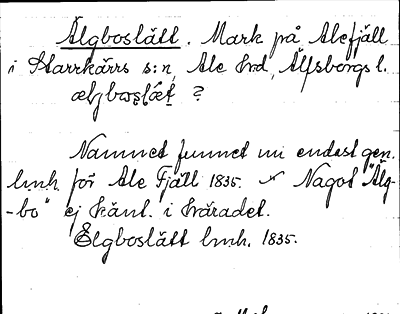 Älgboslätt. Mark på Alefjäll
i Starrkärrs s:n, Ale hrd, Älfsborgs l.
ælјbɷsḷæ̀t ?
Namnet funnet nu endast gen.
lmh. för Ale Fjäll 1835. Något "Älg-
-bo" ej känt. i häradet.
Elgboslätt lmh. 1835.